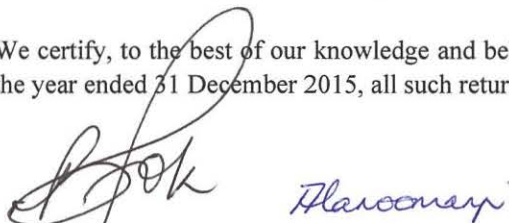 We certify, to the best of our knowledge and be
the year ended 31 December 2015, all such retur